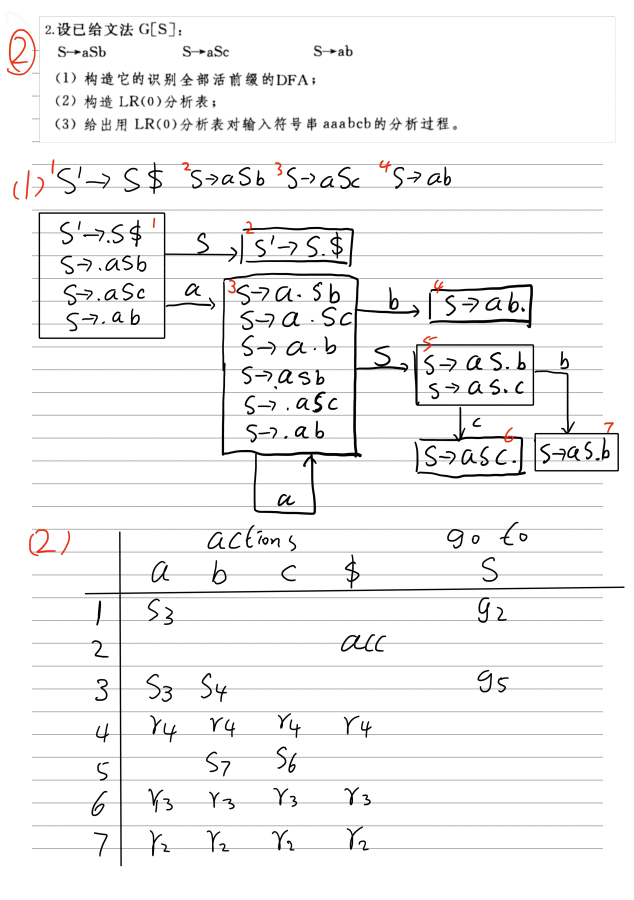 2.设已给文法 G[S]:
② S→aSb S→aSc S→ab
(1) 构造它的识别全部活前缀的DFA;
(2) 构造 LR(0)分析表;
(3) 给出用 LR(0)分析表对输入符号串 aaabcb的分析过程。
(1) 1 S'→S$ 2 S→aSb 3 S→aSc 4 S→ab
S'→.S$ 1
S→.aSb
S→.aSc
S→.ab
S
2
S'→S.$
a
3 S→a.Sb
S→a.Sc
S→a.b
S→.asb
S→.aSc
S→.ab
a
b
4
S→ab.
S
5
S→aS.b
S→aS.c
b
c
6
S→aSc.
7
S→aS.b
(2) actions go to
a b c $ S
1 S3 g2
2 acc
3 S3 S4 g5
4 r4 r4 r4 r4
5 S7 S6
6 r3 r3 r3 r3
7 r2 r2 r2 r2